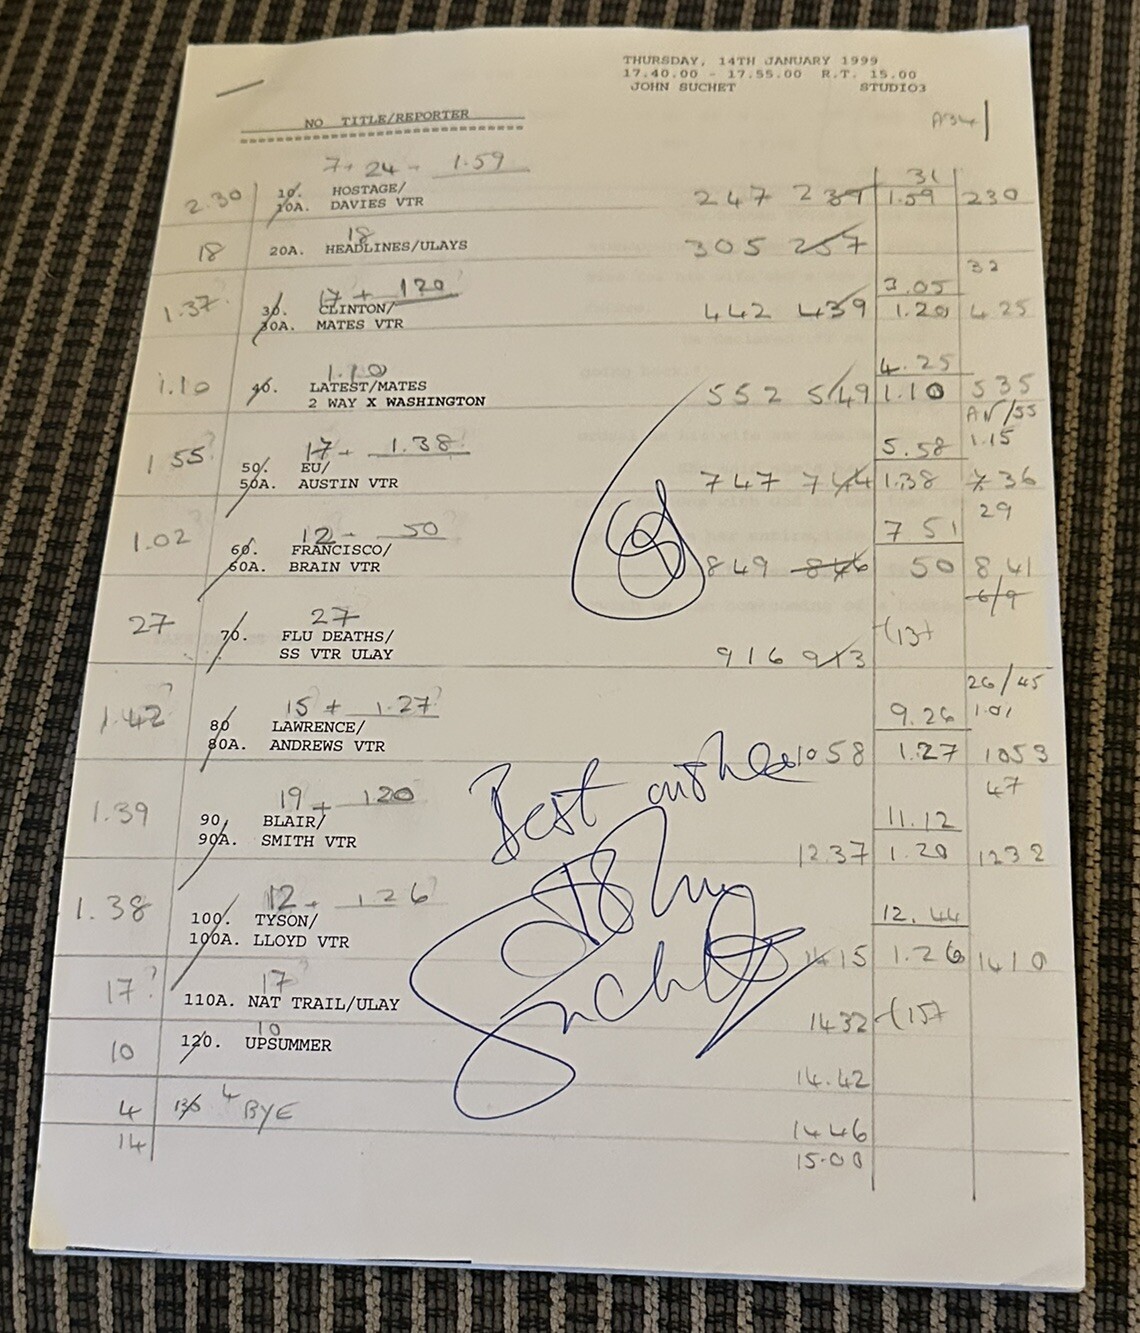 THURSDAY, 14TH JANUARY 1999
17.40.00 - 17.55.00 R.T. 15.00
JOHN SUCHET STUDIO3
NO TITLE/REPORTER
A34
7+ 24 - 1.59 31
2.30 10. HOSTAGE/ 247 239 1.59 230
10A. DAVIES VTR
18
18 20A. HEADLINES/ULAYS 305 257
32
17 + 120 3.05
1.37? 30. CLINTON/ 442 439 1.20 4.25
30A. MATES VTR
1.10 4.25
1.10 40. LATEST/MATES 552 549 1.10 535
2 WAY X WASHINGTON
/55
17 - 1.38? 5.58 1.15
1 55? 50. EU/ 747 744 1.38 736
50A. AUSTIN VTR
29
12 - 50? 7 51
1.02? 60. FRANCISCO/ 849 846 50 8 41
60A. BRAIN VTR
6/9
27 27 (13)
70. FLU DEATHS/
SS VTR ULAY 916 913
26/45
15 + 1.27? 9.26 1.01
1.42? 80 LAWRENCE/
80A. ANDREWS VTR 1058 1.27 1053
47
19 + 120
1.39 90. BLAIR/ 11.12
90A. SMITH VTR 1237 1.20 1232
12 - 1 26?
1.38 100. TYSON/ 12.44
100A. LLOYD VTR 1415 1.26 1410
17?
17? 110A. NAT TRAIL/ULAY 1432 (15)
10
10 120. UPSUMMER 14.42
4 130 4 BYE 1446
14 15.00
Best wishes
John
Suchet